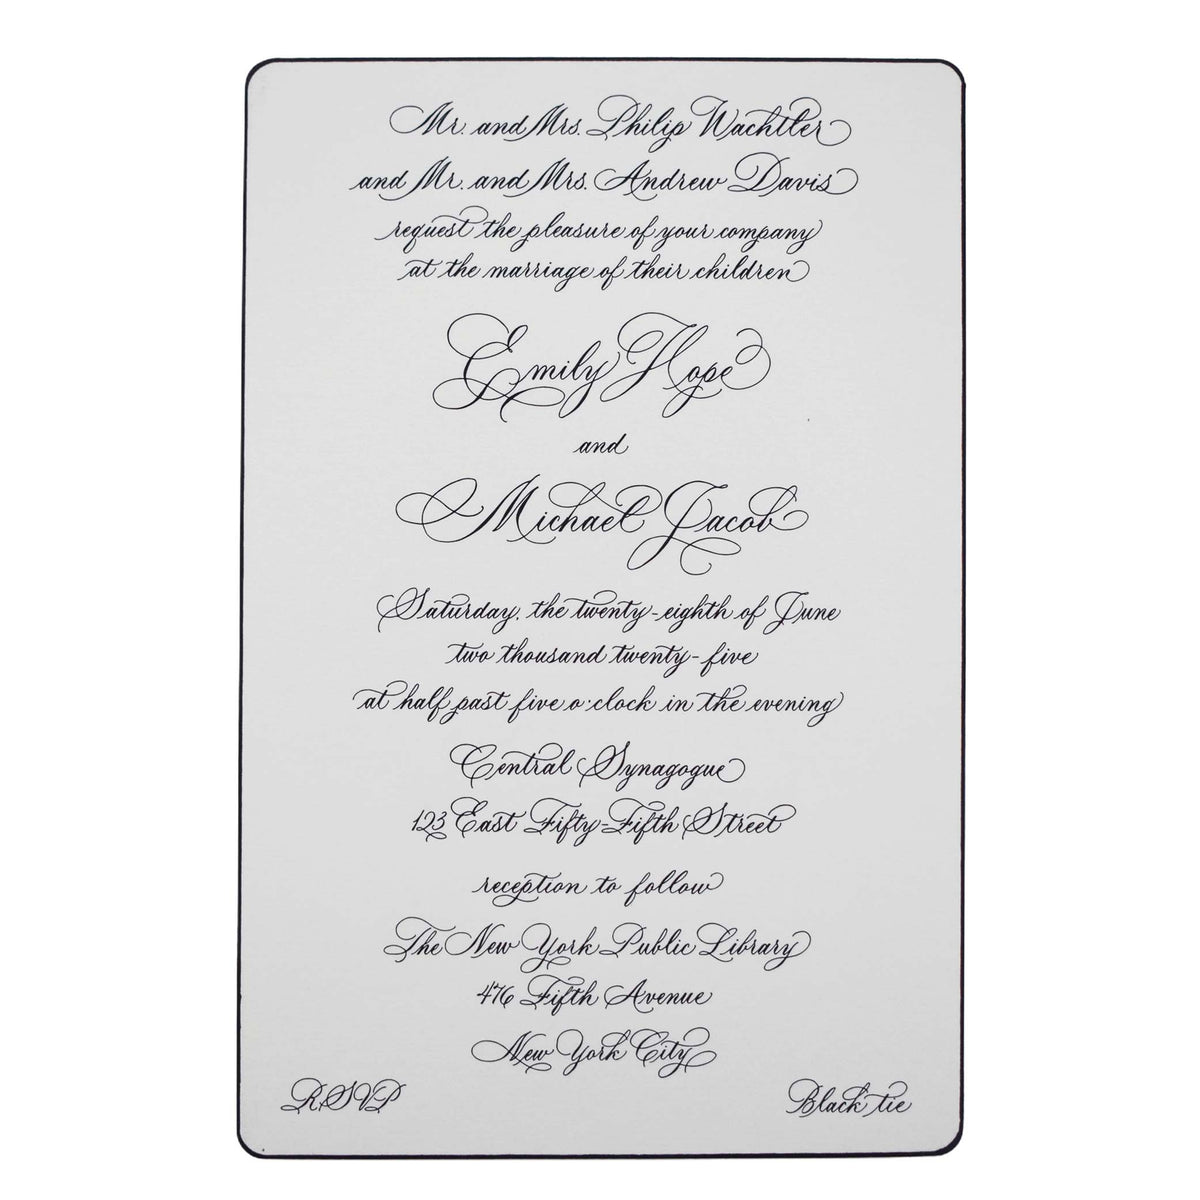 Mr. and Mrs. Philip Wachtler
and Mr. and Mrs. Andrew Davis
request the pleasure of your company
at the marriage of their children
Emily Hope
and
Michael Jacob
Saturday, the twenty-eighth of June
two thousand twenty-five
at half past five o'clock in the evening
Central Synagogue
123 East Fifty-Fifth Street
reception to follow
The New York Public Library
476 Fifth Avenue
New York City
RSVP
Black tie